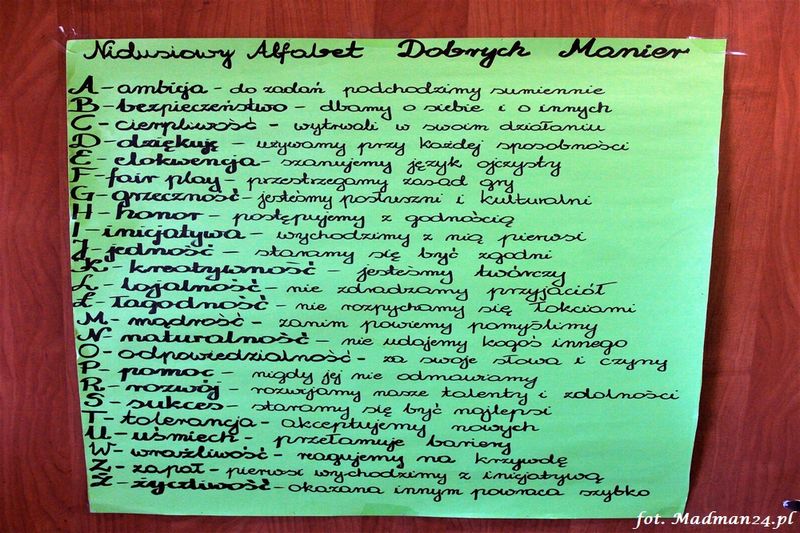 Nidusiowy Alfabet Dobrych Manier
A - ambicja - do zadań podchodzimy sumiennie
B - bezpieczeństwo - dbamy o siebie i o innych
C - cierpliwość - wytrwali w swoim działaniu
D - dziękuję - używamy przy każdej sposobności
E - elokwencja - szanujemy język ojczysty
F - fair play - przestrzegamy zasad gry
G - grzeczność - jesteśmy posłuszni i kulturalni
H - honor - postępujemy z godnością
I - inicjatywa - wychodzimy z nią pierwsi
J - jedność - staramy się być zgodni
K - kreatywność - jesteśmy twórczy
L - lojalność - nie zdradzamy przyjaciół
Ł - łagodność - nie rozpychamy się łokciami
M - mądrość - zanim powiemy pomyślimy
N - naturalność - nie udajemy kogoś innego
O - odpowiedzialność - za swoje słowa i czyny
P - pomoc - nigdy jej nie odmawiamy
R - rozwój - rozwijamy nasze talenty i zdolności
S - sukces - staramy się być najlepsi
T - tolerancja - akceptujemy nowych
U - uśmiech - przełamuje bariery
W - wrażliwość - reagujemy na krzywdę
Z - zapał - pierwsi wychodzimy z inicjatywą
Ż - życzliwość - okazana innym powraca szybko
fot. Madman24.pl